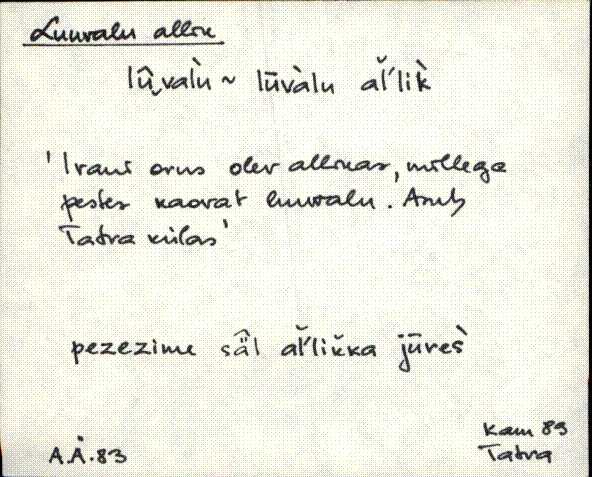 Luuvalu allik
lū̬valù ~ lūvàlu aľ̆lik̀
'Irani orus olev allikas, millega
pestes kaovat luuvalu. Asub
Tatra külas'
pezezime sä̂l ăľlik̆ka jūres̀
A.Ä.83
Kam 89
Tatra